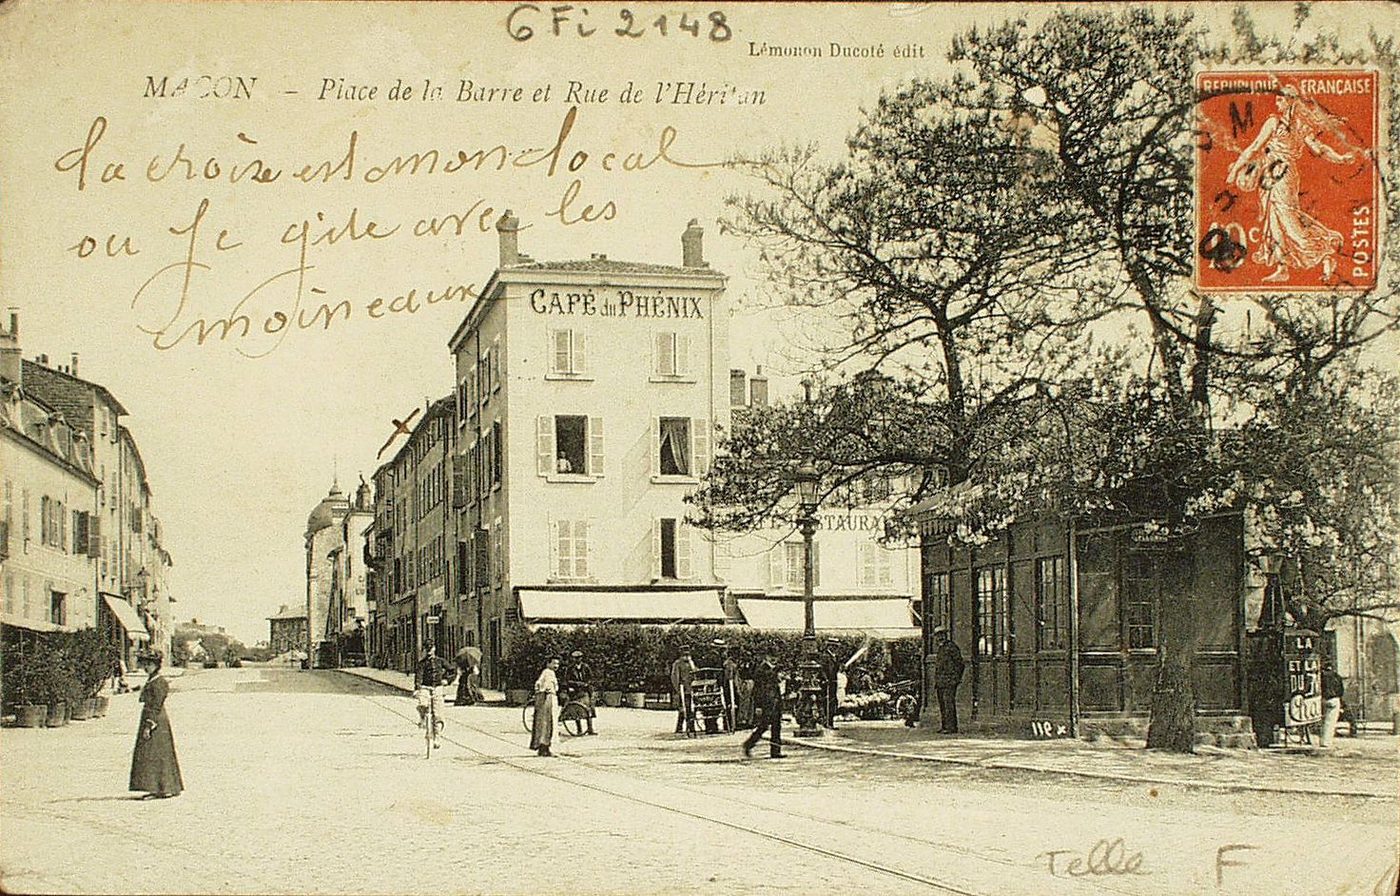 6 Fi 2148
Lémonon Ducoté édit
MACON – Place de la Barre et Rue de l'Héritan
La croix est mon local
ou je gite avec les
moineaux
REPUBLIQUE FRANÇAISE
10c
POSTES
CAFÉ du PHÉNIX
RESTAURA
LA
ET LA
DU
119 x
Telle F